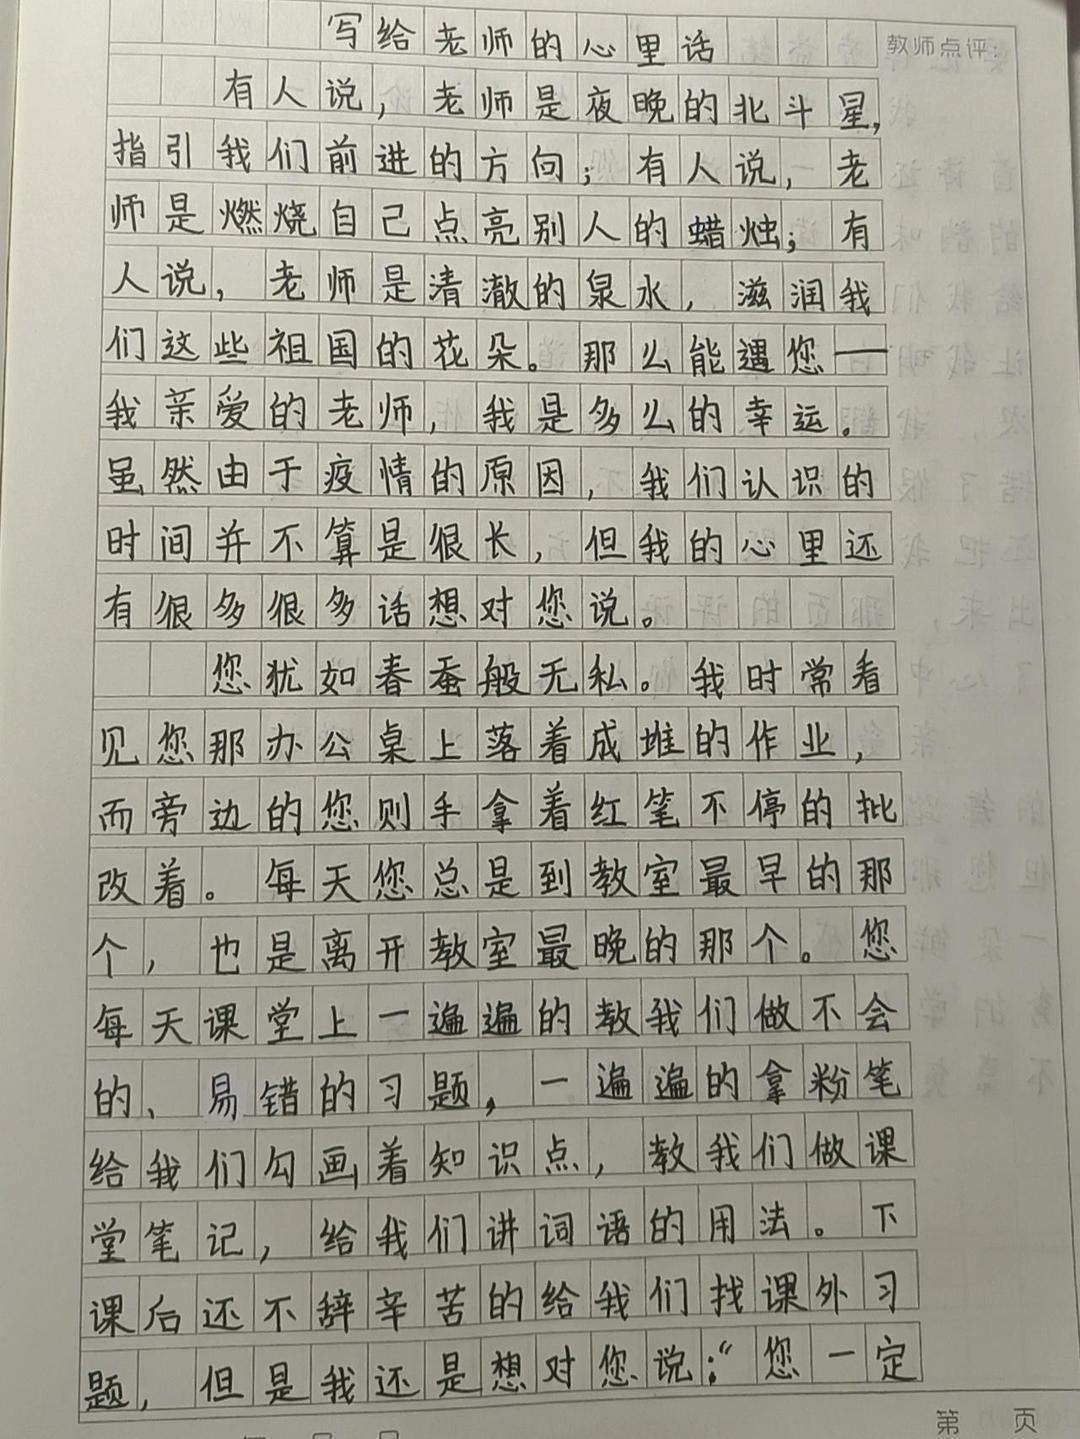 写给老师的心里话
教师点评：
有人说，老师是夜晚的北斗星，
指引我们前进的方向；有人说，老
师是燃烧自己点亮别人的蜡烛；有
人说，老师是清澈的泉水，滋润我
们这些祖国的花朵。那么能遇您——
我亲爱的老师，我是多么的幸运。
虽然由于疫情的原因，我们认识的
时间并不算是很长，但我的心里还
有很多很多话想对您说。
您犹如春蚕般无私。我时常看
见您那办公桌上落着成堆的作业，
而旁边的您则手拿着红笔不停的批
改着。每天您总是到教室最早的那
个，也是离开教室最晚的那个。您
每天课堂上一遍遍的教我们做不会
的、易错的习题，一遍遍的拿粉笔
给我们勾画着知识点，教我们做课
堂笔记，给我们讲词语的用法。下
课后还不辞辛苦的给我们找课外习
题，但是我还是想对您说：“您一定
第 页